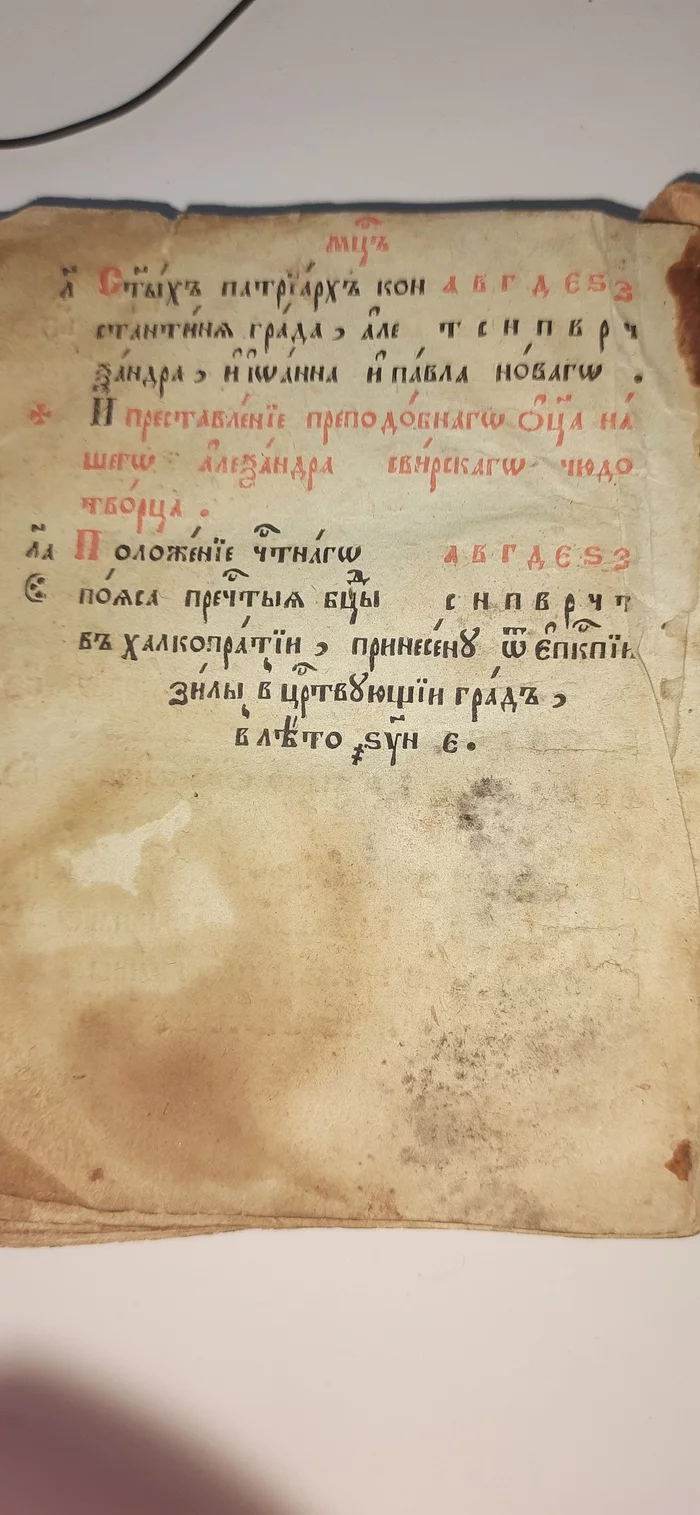 мц҃ъ
л҃ Ст҃ы́хъ патрїа́рхъ кон а в г д є ѕ з
стѧнти́нѧ гра́да, а҆ле т с н п в р ч
ѯа́ндра, и҆ і҆ѡа́нна и҆ па́вла но́вагѡ .
И преставле́нїе преподо́бнагѡ ѻ҆ц҃а на́
шегѡ а҆леѯа́ндра сви́рскагѡ чюдо
тво́рца .
л҃а Положе́нїе чⷭ҇тна́гѡ а в г д є ѕ з
є по́ѧса пречⷭ҇тыѧ бцⷣы с н п в р ч т
въ халкопра́тїи, принесе́нꙋ ѿ є҆пкⷭ҇пїи
зи́лы, в црⷭ҇твꙋющїи гра́дъ,
в лѣ́то ҂ѕѵ҃н є.